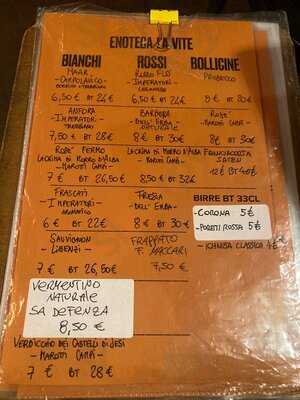 ENOTECA LA VITE
BIANCHI
6,50 € BT 24€
ANFORA
- IMPERATORI -
7,50 € BT 28€
"ROSE" FERMO
LACRIMA DI MORRO D'ALBA
- MAROTTI CAMPI -
7 € BT 26,50€
FRASCATI
- IMPERATORI -
6 € BT 22€
SAUVIGNON
7 € BT 26,50€
VERMENTINO
NATURALE
SA DEFENZA
8,50 €
VERDICCHIO DEI CASTELLI DI JESI
- MAROTTI CAMPI -
7 € BT 28€
ROSSI
- IMPERATORI -
6,50 € BT 24€
BARBERA
NATURALE
8€ BT 30€
LACRIMA DI MORRO D'ALBA
- MAROTTI CAMPI -
8,50€ BT 32€
8€ BT 30€
FRAPPATO
7,50 €
BOLLICINE
PROSECCO
"ROSE"
- MAROTTI CAMPI -
8€ BT 30€
FRANCIACORTA
SATEN
12€ BT 40€
BIRRE BT 33CL
- CORONA 5€
- PORETTI ROSSA 5€
- ICHNUSA CLASSICA 4€